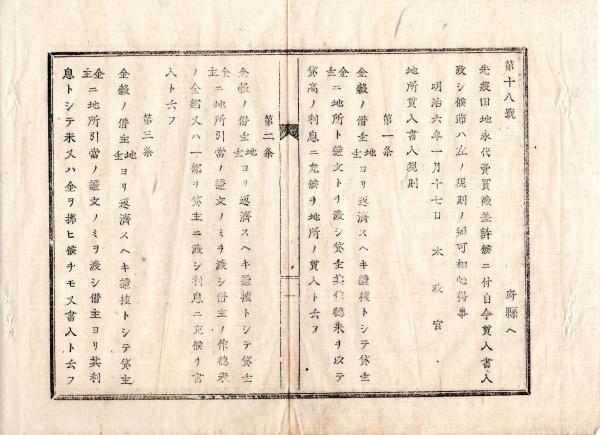 第十八號
府縣ヘ
先般田地永代賣買被差許候ニ付自今質入書入
致シ候節ハ左ノ規則ノ通可相心得事
明治六年一月十七日 太政官
地所質入書入規則
第一条
金穀ノ借主地主ヨリ返濟スヘキ證據トシテ貸主
金主ニ地所ト證文トヲ渡シ貸主其作德米ヲ以テ
貸高ノ利息ニ充候ヲ地所ノ質入ト云フ
第二条
金穀ノ借主地主ヨリ返濟スヘキ證據トシテ貸主
金主ニ地所引當ノ證文ノミヲ渡シ借主ノ作德米
ノ全部又ハ一部ヲ貸主ニ渡シ利息ニ充候ヲ書
入ト云フ
第三条
金穀ノ借主地主ヨリ返濟スヘキ證據トシテ貸主
金主ニ地所引當ノ證文ノミヲ渡シ借主ヨリ其利
息トシテ米又ハ金ヲ拂ヒ候ヲモ又書入ト云フ
一